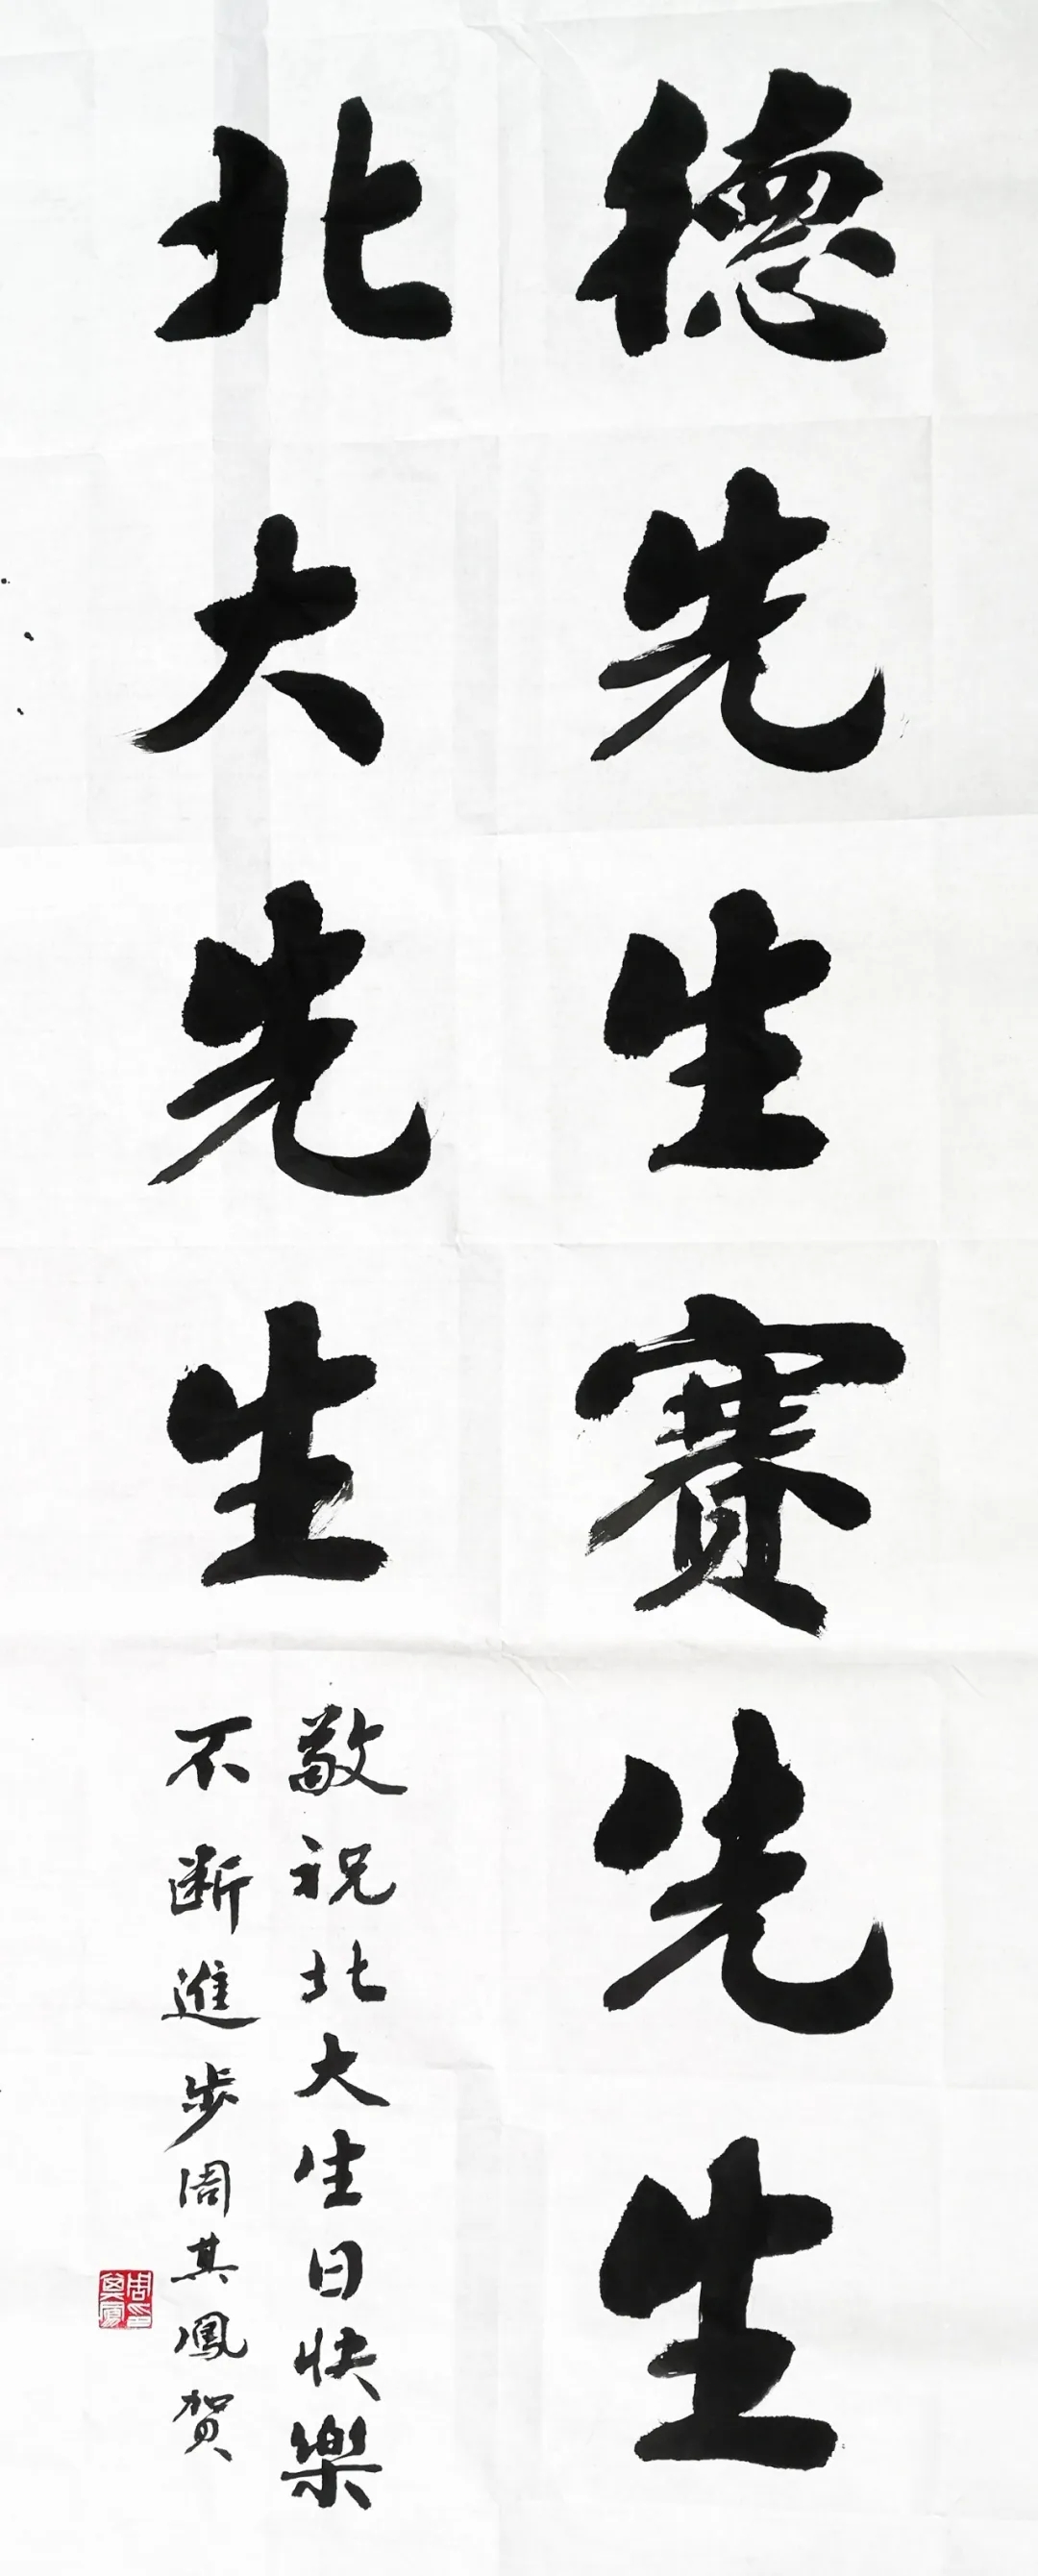 德先生賽先生
北大先生
敬祝北大生日快樂
不断進步周其鳳贺